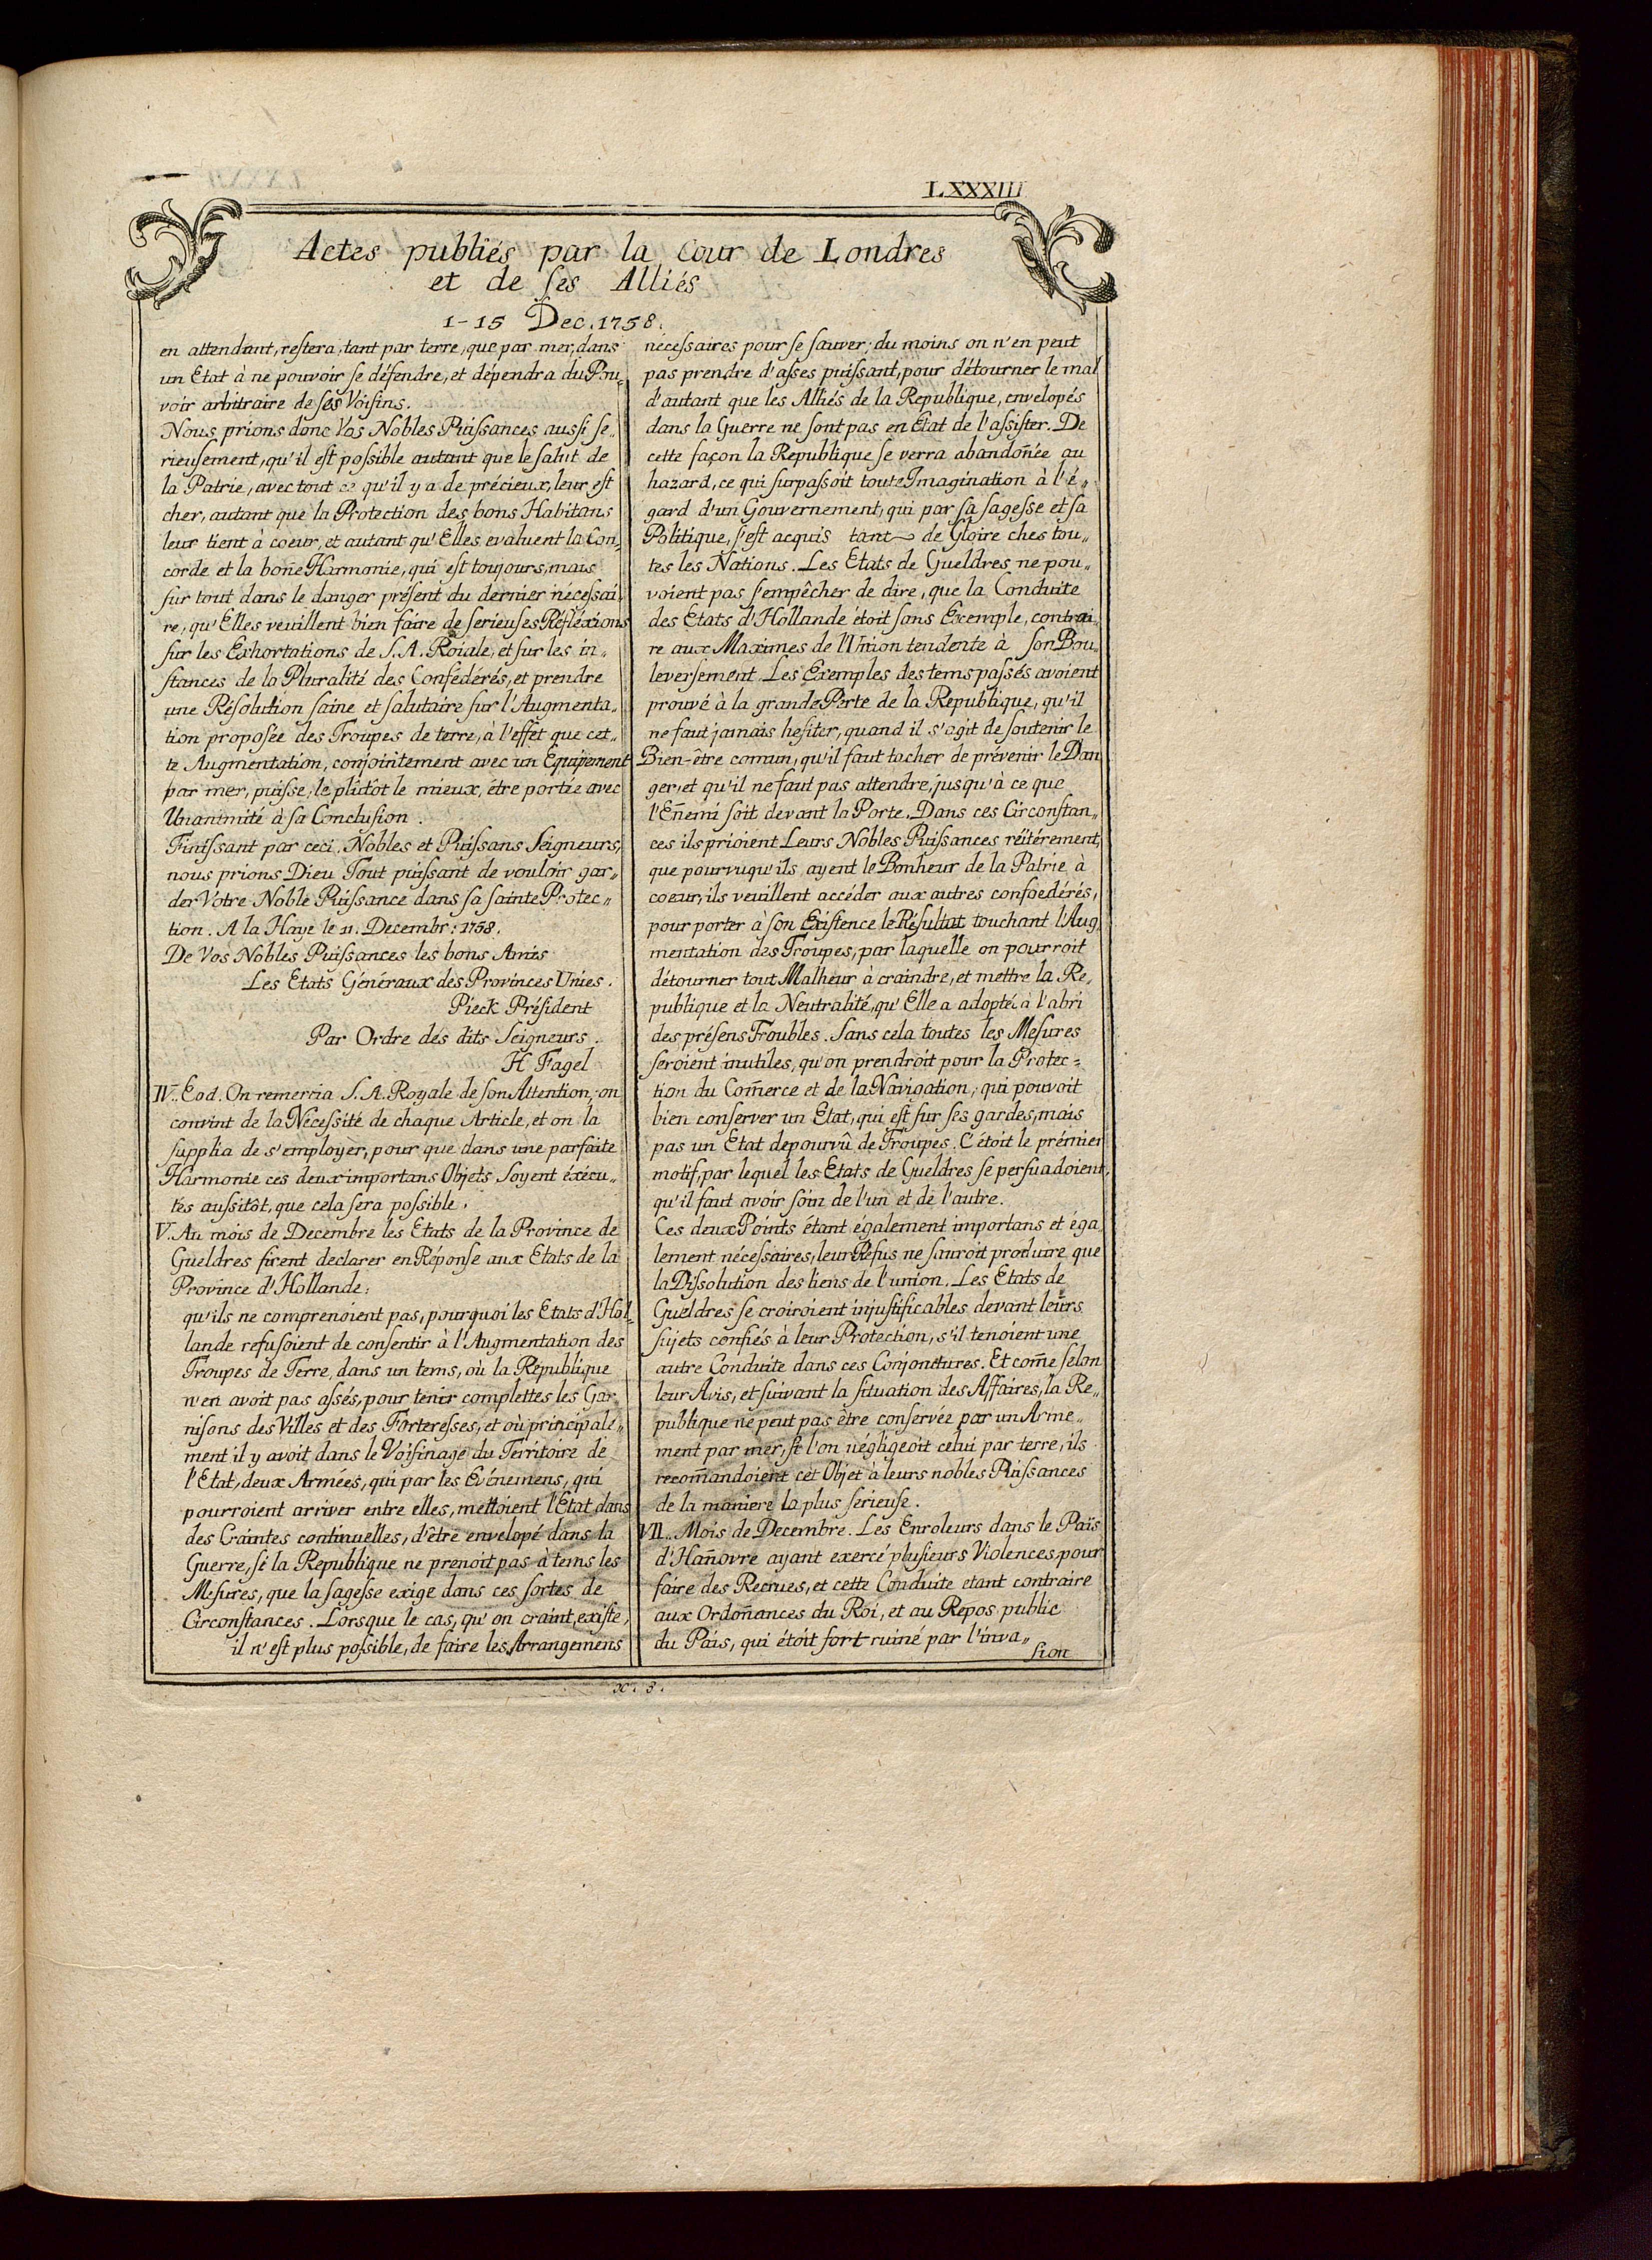 LXXXIII
Actes publiés par la Cour de Londres
et de ses Alliés
1-15 Dec. 1758.
en attendant, restera, tant par terre, que par mer, dans
un Etat à ne pouvoir se défendre, et dépendra du Pou„
voir arbitraire de ses Voisins.
Nous prions donc Vos Nobles Puissances aussi se„
rieusement, qu'il est possible autant que le salut de
la Patrie, avec tout ce qu'il y a de précieux, leur est
cher, autant que la Protection des bons Habitans
leur tient à coeur, et autant qu'Elles evaluent la Con„
corde et la bon̄e Harmonie, qui est toujours, mais
sur tout dans le danger présent du dernier nécessai„
re, qu'Elles veuillent bien faire de serieuses Réfléxions
sur les Exhortations de S. A. Roiale, et sur les in„
stances de la Pluralité des Confédérés, et prendre
une Résolution saine et salutaire sur l'Augmenta„
tion proposée des Troupes de terre, à l'effet que cet„
te Augmentation, conjointement avec un Equipement
par mer, puisse, le plûtôt le mieux, étre portée avec
Unanimité à sa Conclusion.
Finissant par ceci, Nobles et Puissans Seigneurs,
nous prions Dieu Tout puissant de vouloir gar„
der Votre Noble Puissance dans sa sainte Protec„
tion. A la Haye le 11. Decembr: 1758.
De Vos Nobles Puissances les bons Amis
Les Etats Généraux des Provinces Unies.
Pieck Président
Par Ordre des dits Seigneurs.
H Fagel
IV. Eod. On remercia S. A. Royale de son Attention; on
convint de la Nécessité de chaque Article, et on la
supplia de s'employer, pour que dans une parfaite
Harmonie ces deux importans Objets soyent éxécu„
tés aussitôt, que cela sera possible.
V. Au mois de Decembre les Etats de la Province de
Gueldres firent declarer en Réponse aux Etats de la
Province d'Hollande:
qu'ils ne comprenoient pas, pourquoi les Etats d'Hol„
lande refusoient de consentir à l'Augmentation des
Troupes de Terre, dans un tems, où la République
n'en avoit pas assés, pour tenir complettes les Gar„
nisons des Villes et des Forteresses, et où principale„
ment il y avoit dans le Voisinage du Territoire de
l'Etat, deux Armées, qui par les Evénemens, qui
pourroient arriver entre elles, mettoient l'Etat dans
des Craintes continuelles, d'être envelopé dans la
Guerre, si la Republique ne prenoit pas à tems les
Mesures, que la sagesse exige dans ces sortes de
Circonstances. Lorsque le cas, qu'on craint, existe,
il n'est plus possible, de faire les Arrangemens
nécessaires pour se sauver; du moins on n'en peut
pas prendre d'asses puissant, pour détourner le mal
d'autant que les Alliés de la Republique, envelopés
dans la Guerre ne sont pas en Etat de l'assister. De
cette façon la Republique se verra abandon̄ée au
hazard, ce qui surpassoit toute Imagination à l'é„
gard d'un Gouvernement, qui par sa sagesse et sa
Politique, s'est acquis tant de Gloire ches tou„
tes les Nations. Les Etats de Gueldres ne pou„
voient pas s'empêcher de dire, que la Conduite
des Etats d'Hollande étoit sans Exemple, contrai„
re aux Maximes de l'Union tendente à son Bou„
leversement. Les Exemples des tems passés avoient
prouvé à la grande Perte de la Republique, qu'il
ne faut jamais hesiter, quand il s'agit de soutenir le
Bien-être com̄un, qu'il faut tacher de prévenir le Dan
ger, et qu'il ne faut pas attendre, jusqu'à ce que
l'En̄emi soit devant la Porte. Dans ces Circonstan„
ces ils prioient Leurs Nobles Puissances réitérement,
que pourvuqu'ils ayent le Bonheur de la Patrie à
coeur, ils veuillent accéder aux autres confoedérés,
pour porter à son Existence le Résultat touchant l'Aug„
mentation des Troupes, par laquelle on pourroit
détourner tout Malheur à craindre, et mettre la Re„
publique et la Neutralité, qu'Elle a adopté à l'abri
des présens Troubles. Sans cela toutes les Mesures
seroient inutiles, qu'on prendroit pour la Protec=
tion du Com̄erce et de la Navigation, qui pouvoit
bien conserver un Etat, qui est sur ses gardes, mais
pas un Etat depourvû de Troupes. C'étoit le prémier
motif, par lequel les Etats de Gueldres se persuadoient,
qu'il faut avoir soin de l'un et de l'autre.
Ces deux Points étant également importans et éga
lement nécessaires, leur Refus ne sauroit produire que
la Dissolution des liens de l'union. Les Etats de
Gueldres se croiroient injustificables devant leurs
sujets confiés à leur Protection, s'il tenoient une
autre Conduite dans ces Conjonctures. Et com̄e selon
leur Avis, et suivant la situation des Affaires, la Re„
publique ne peut pas être conservée par un Arme„
ment par mer, si l'on négligeoit celui par terre, ils
recom̄andoient cet Objet à leurs nobles Puissances
de la maniere la plus serieuse.
VII. Mois de Decembre. Les Enroleurs dans le Païs
d'Han̄ovre ayant exercé plusieurs Violences pour
faire des Recrues, et cette Conduite etant contraire
aux Ordon̄ances du Roi, et au Repos public
du Païs, qui étoit fort ruiné par l'inva„
sion
X. 3.